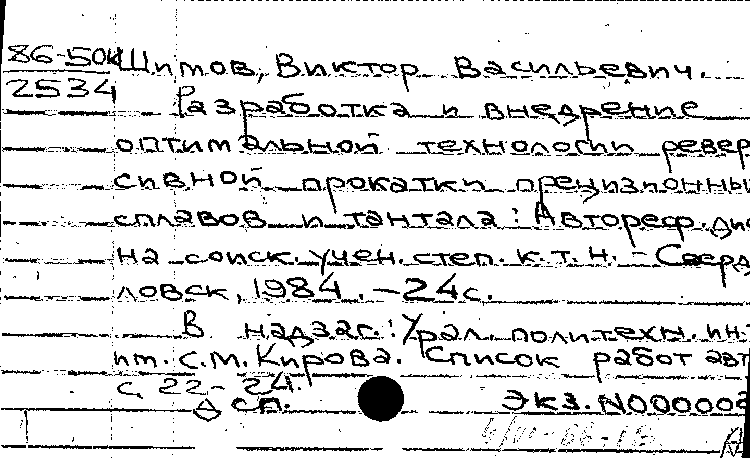 86-50к Шитов, Виктор Васильевич.
2534
Разработка и внедрение
оптимальной технологии ревер
сивной прокатки прецизионны
сплавов и тантала: Автореф. дис
на соиск. учен. степ. к.т.н. - Сверд
ловск, 1984. - 24 с.
В надзаг.: Урал. политехн. ин-
им. С.М. Кирова. Список работ авт
с. 22-24.
сп. Экз. N000002